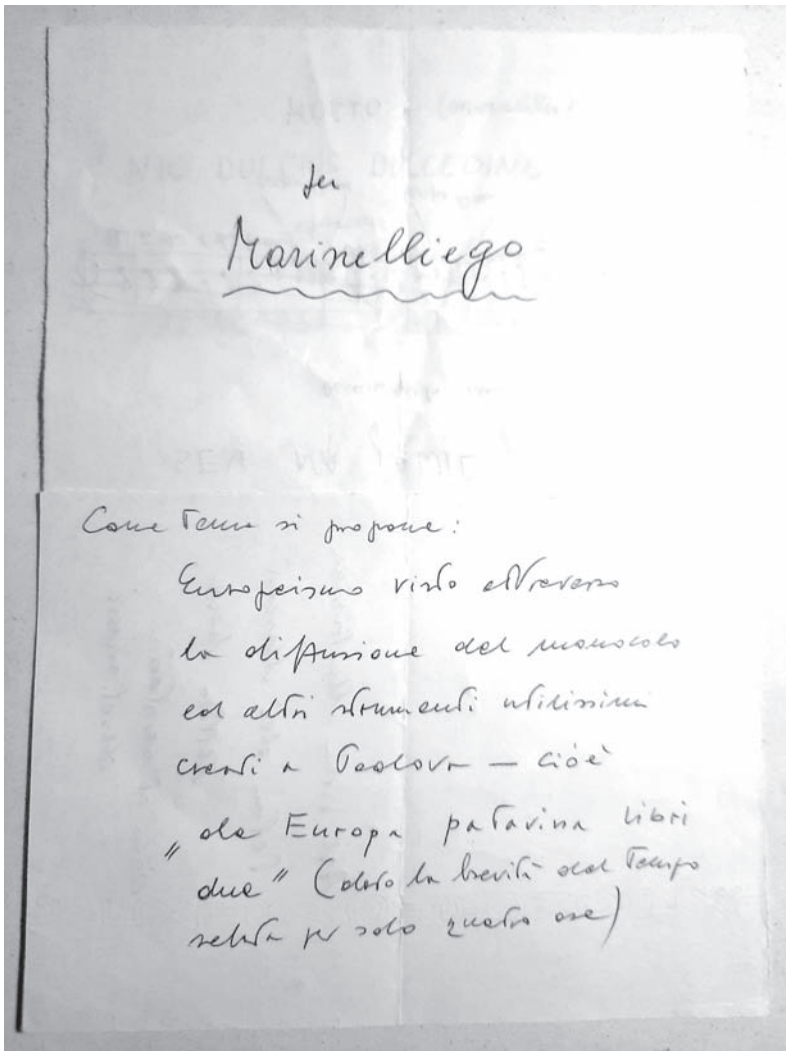 per
Marinelliego
Come Tema si propone:
Europeismo visto attraverso
la diffusione del monocolo
ed altri strumenti utilissimi
creati a Padova — cióè
„de Europa patavina libri
due" (dato la brevità del Tempo
per solo quatro ore)